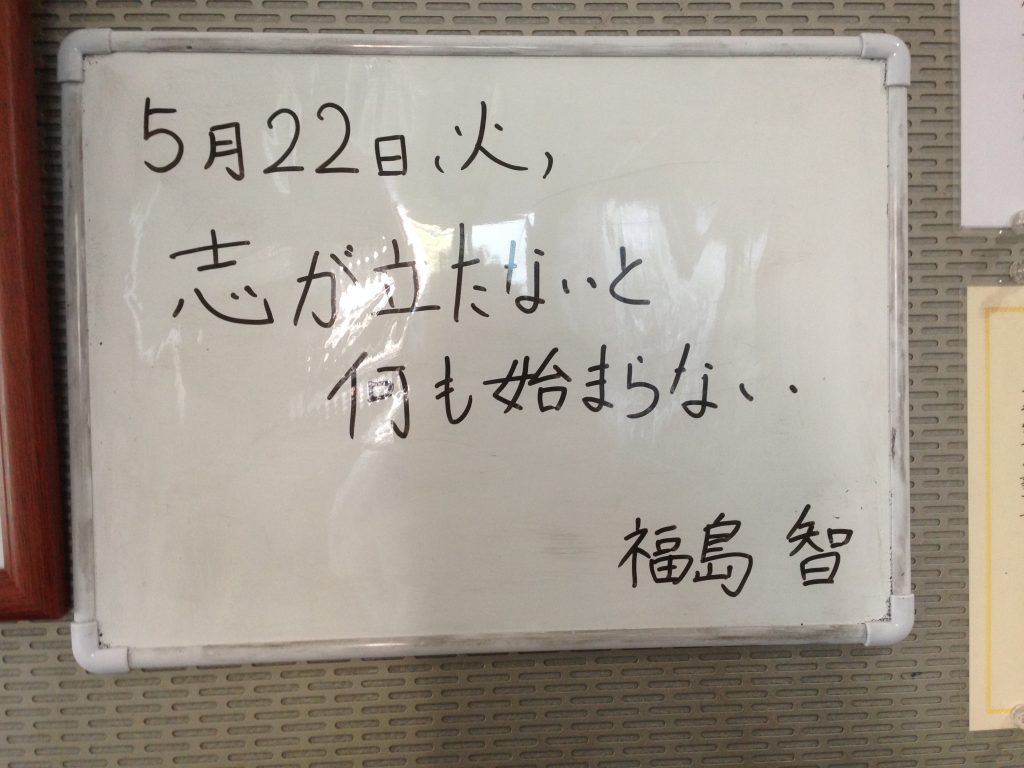 5月22日、火,
志が立たないと
何も始まらない.
福島 智